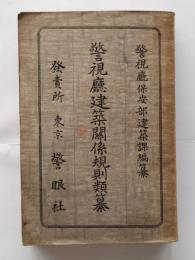 警視廳保安部建築課編纂
警視廳建築關係規則類纂
發賣所 東京 警眼社